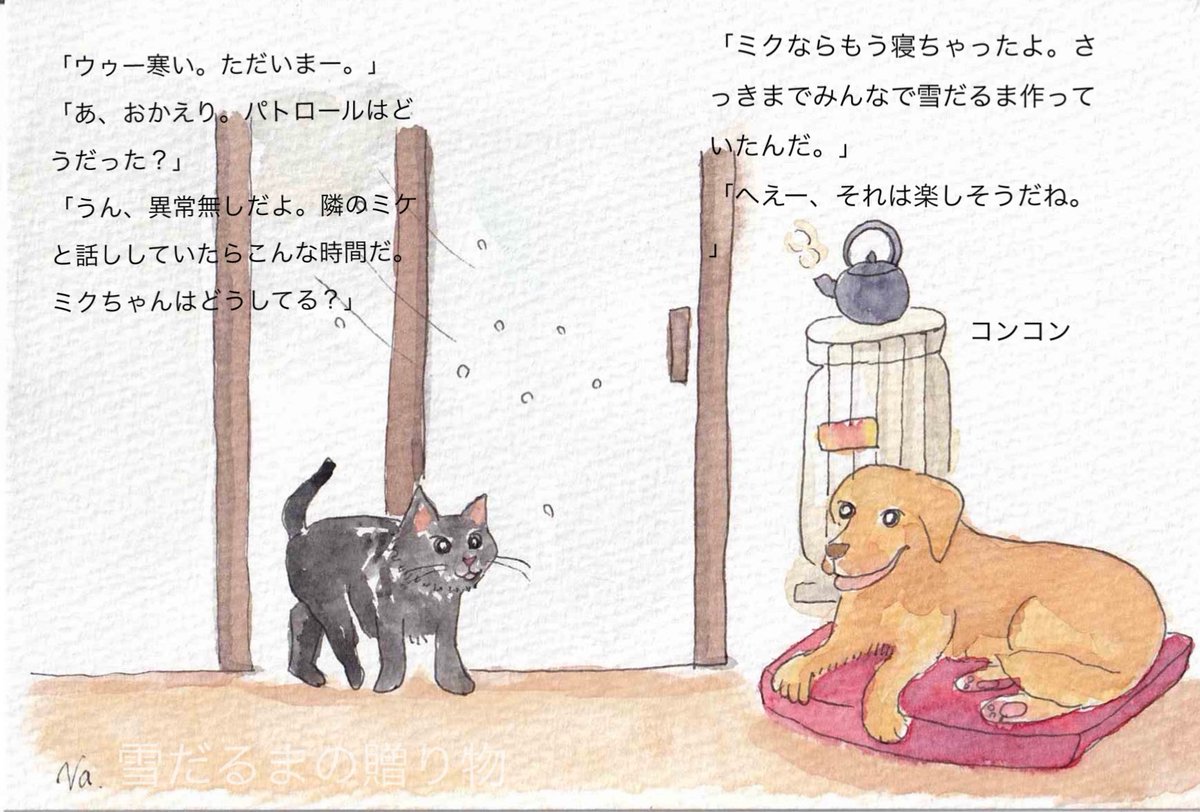 「ウゥー寒い。ただいまー。」
「あ、おかえり。パトロールはど
うだった？」
「うん、異常無しだよ。隣のミケ
と話ししていたらこんな時間だ。
ミクちゃんはどうしてる？」
「ミクならもう寝ちゃったよ。さ
っきまでみんなで雪だるま作って
いたんだ。」
「へえー、それは楽しそうだね。
」
コンコン
Va.
雪だるまの贈り物